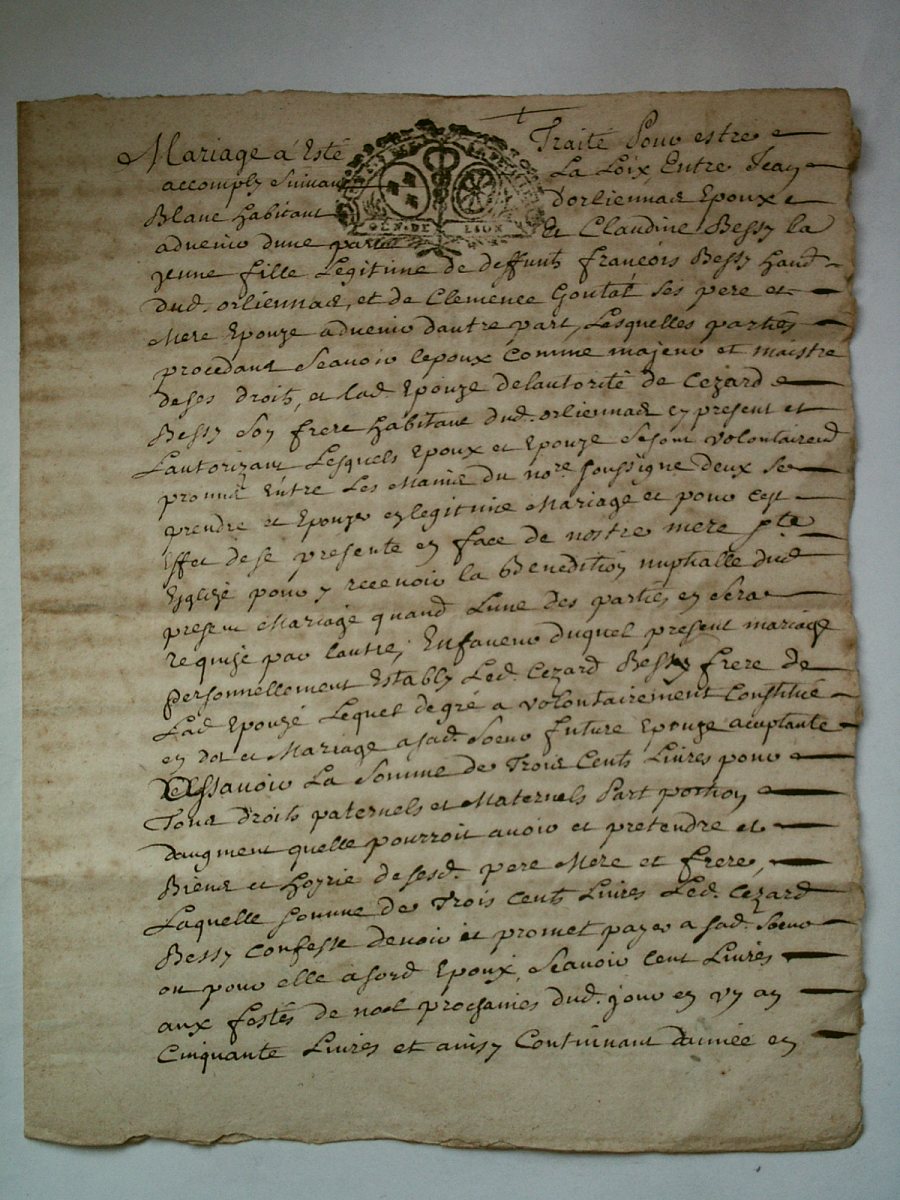 Mariage a Esté Traité Pour estre
accomply Suivant La Loix, Entre Jean
Blanc habitant d'orliennas Epoux
GEN. DE LION
advenir dune part Et Claudine Bessy la
jeune fille Legitime de deffunts francois Bessy hand
dud. orliennas, et de Clemence Goutat ses pere et
Mere Epouze advenir dautre part, Lesquelles parties
procedant Scavoir lepoux Comme majeur et maistre
de ses droits, et lad. Epouze de lautorité de Cezard
Bessy Son frere habitant dud. orliennas cy present et
Lautorizant Lesquels Epoux et Epouze se sont volontairemt
promis Entre Les Mains du nore. soussigne deux se
prendre et Epouzer en legitime Mariage et pour cest
Effet de se presente en face de nostre mere ste
Esglize pour y recevoir la Benedition nuptialle dud.
present Mariage quand Lune des parties en sera
requize par lautre, En faveur duquel present mariage
personnellement Estably Led. Cezard Bessy frere de
Lad. Epouzé Lequel de gré a volontairement Constitué
en dot et Mariage a sad. Soeur future Epouze acceptante
Assavoir La Somme de Trois Cents Livres pour
Tous droits paternels et Maternels Part portion
daugment quelle pourroit avoir et pretendre et
Biens et hoyrie de sesd. pere Mere et frere,
Laquelle somme de Trois Cents Livres Led. Cezard
Bessy Confesse devoir et promet payer a sad. Soeur
ou pour elle a sond Epoux, Scavoir Cent Livres
aux festes de noel prochaines dud. jour en un an
Cinquante Livres et ainsy Continuant d'année en